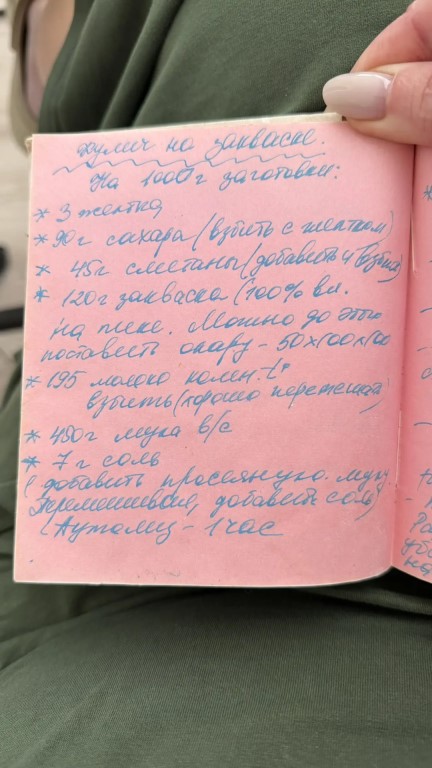 Кулич на закваске.
На 1000 г заготовки:
* 3 желтка
* 90г сахара (взбить с желтком)
* 45г сметаны (добавить и взбить)
* 120г закваска (100% вл.
на пике. Можно до этого
поставить опару - 50х100х100
* 195 молоко комн. t°
взбить (хорошо перемешать)
* 490г мука в/с
* 7 г соль
(добавить просеянную муку
перемешивая, добавить соль)
(Аутолиз - 1 час